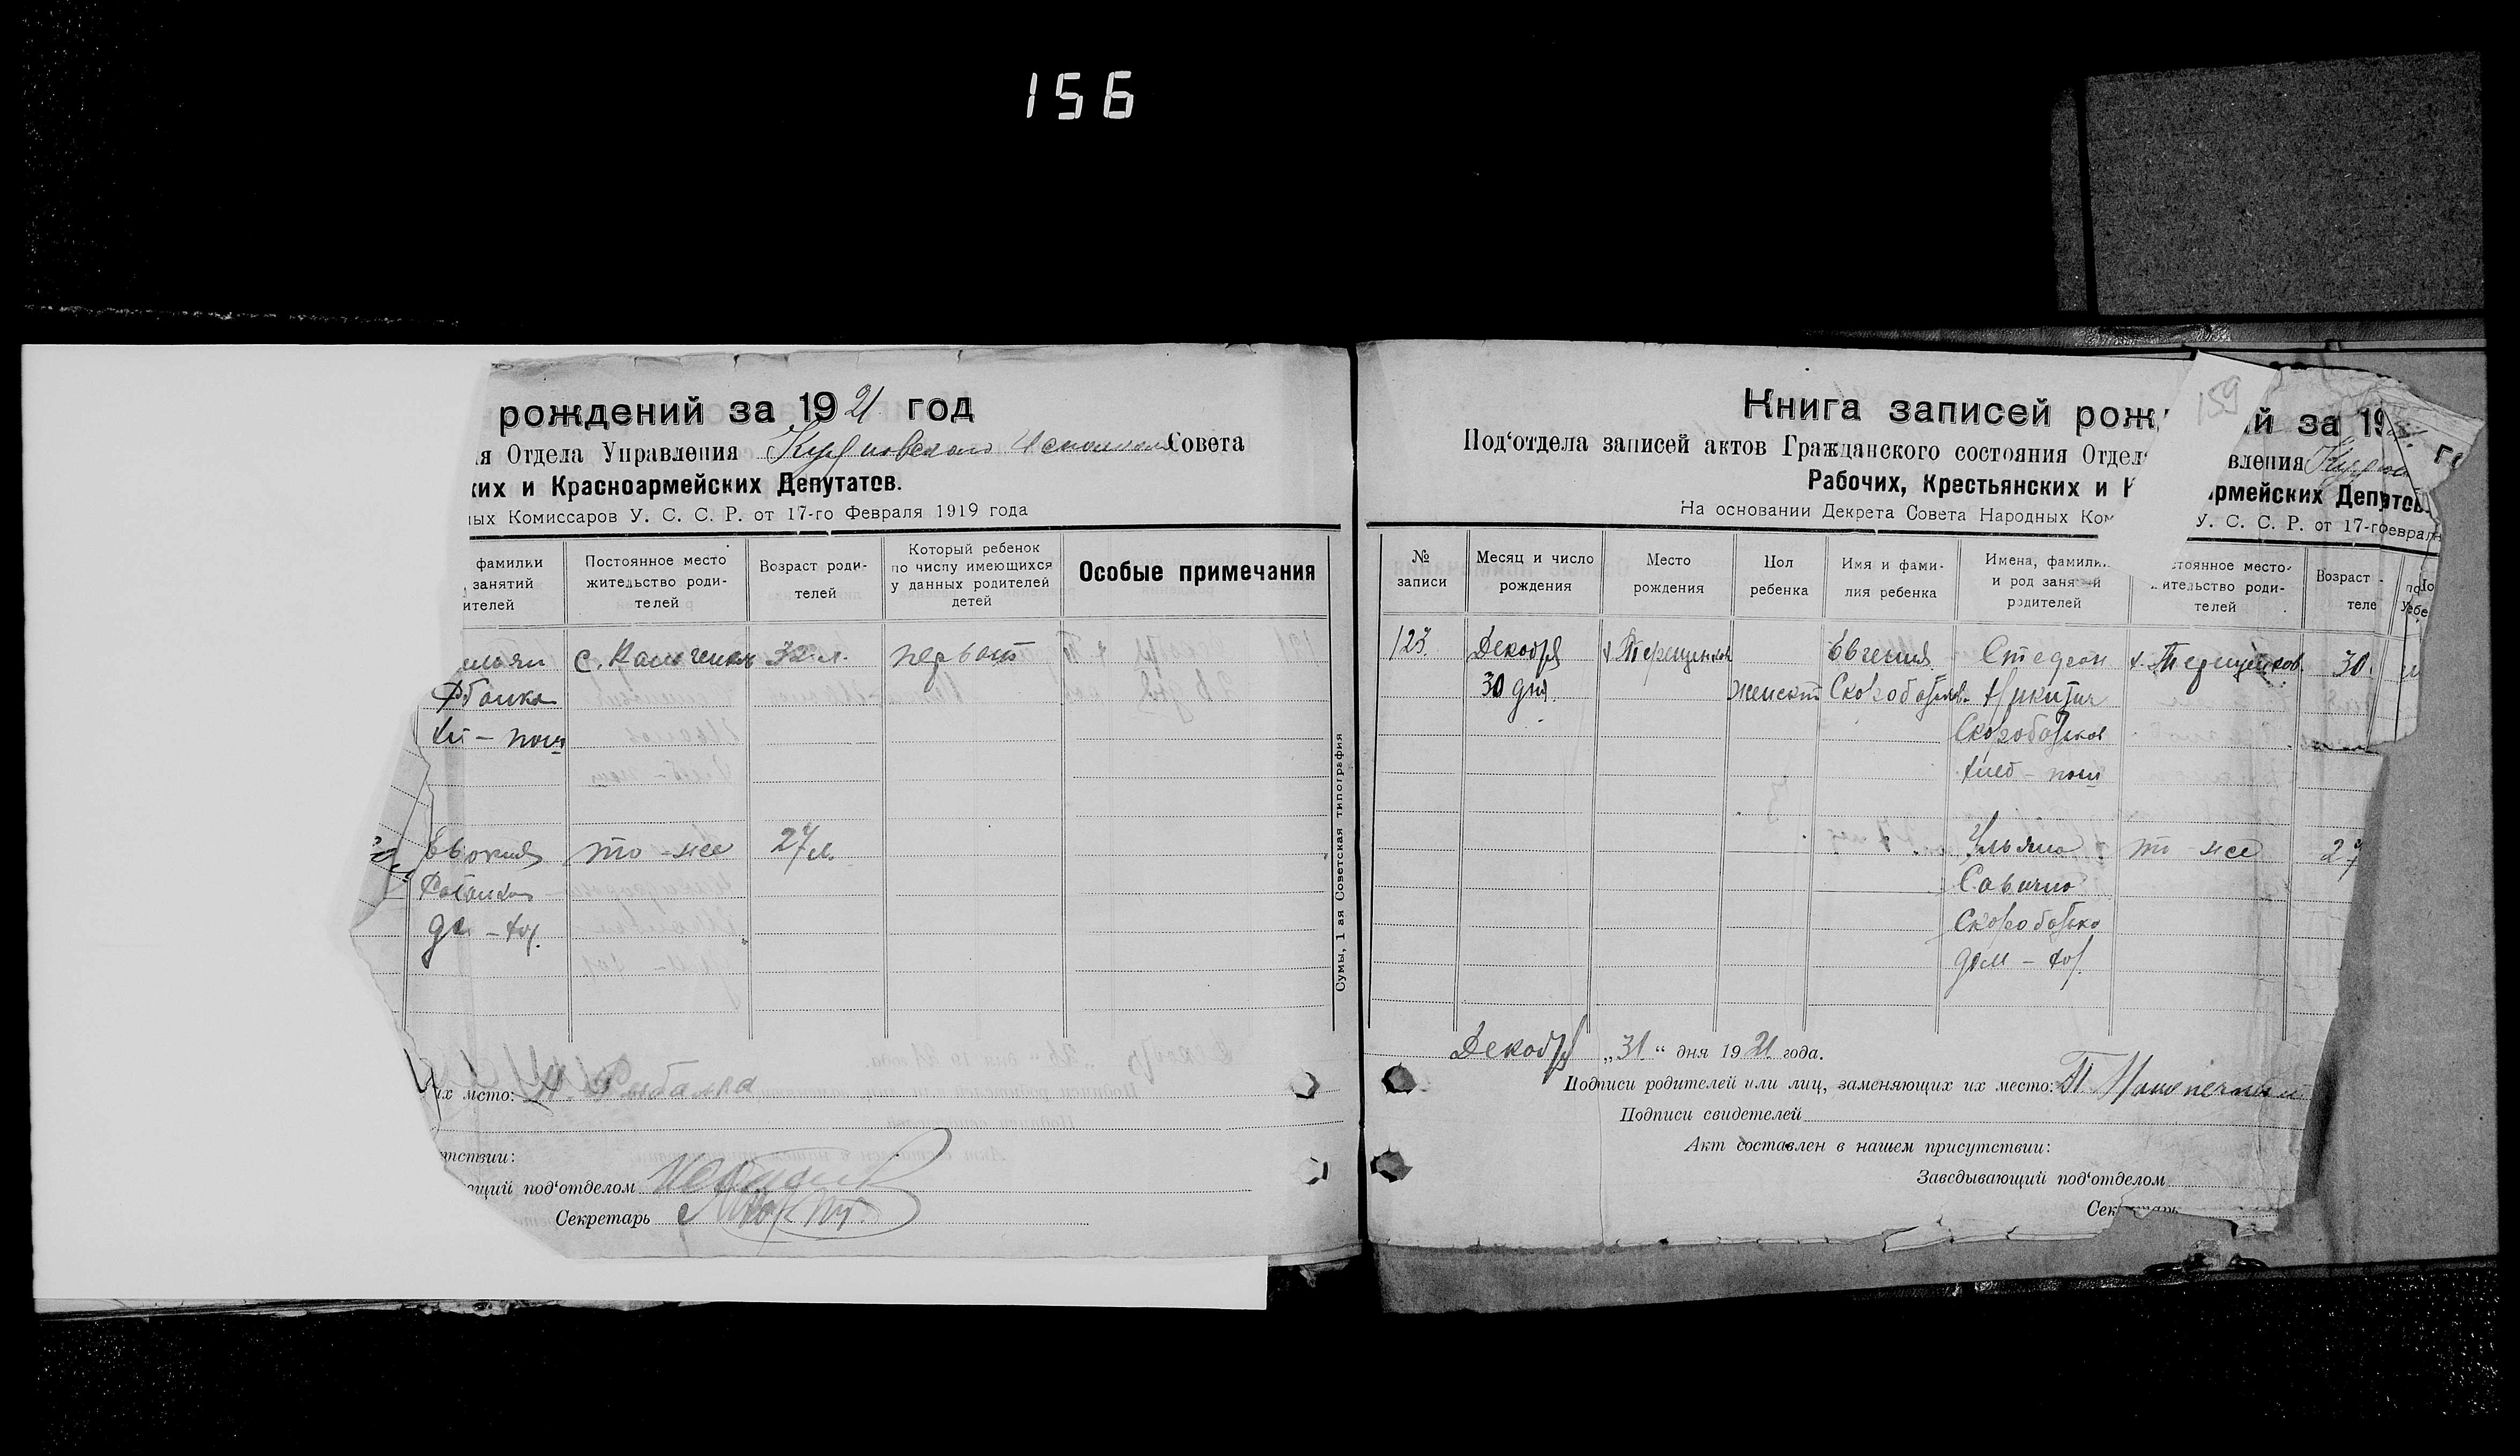 156
рождений за 1921 год
ия Отдела Управления Совета
ких и Красноармейских Депутатов.
ных Комиссаров У. С. С. Р. от 17-го Февраля 1919 года
фамилии занятий ителей
Постоянное место жительство роди-телей
Возраст роди-телей
Который ребенок по числу имеющихся у данных родителей детей
Особые примечания
32 л. первый
хл - паш
Евдокия то-же 27 л.
их мсто: Рыбалка
тствии:
ющий под‘отделом
Секретарь
Сумы, 1 ая Советская типография
159
Книга записей рож й за 19
Под‘отдела записей актов Гражданского состояния Отдел вления
Рабочих, Крестьянских и К армейских Депутов.
На основании Декрета Совета Народных Ком У. С. С. Р. от 17-го евраля
№ записи
Месяц и число рождения
Место рождения
Пол ребенка
Имя и фами-лия ребенка
Имена, фамилии и род занятий родителей
стоянное место-ительство роди-телей
Возраст теле
123. Декабря х. Терещенков Евгения Стефан х. Терещенков 30.
30 дня. женский Скоробатьков. Никитич
Скоробатьков
хлеб - паш
Ульяна то же 27
Савична
Скоробатько
дом - хоз.
Декабря „31“ дня 1921 года.
Подписи родителей или лиц, заменяющих их место:
Подписи свидетелей
Акт составлен в нашем присутствии:
Заведывающий под‘отделом
Секретарь